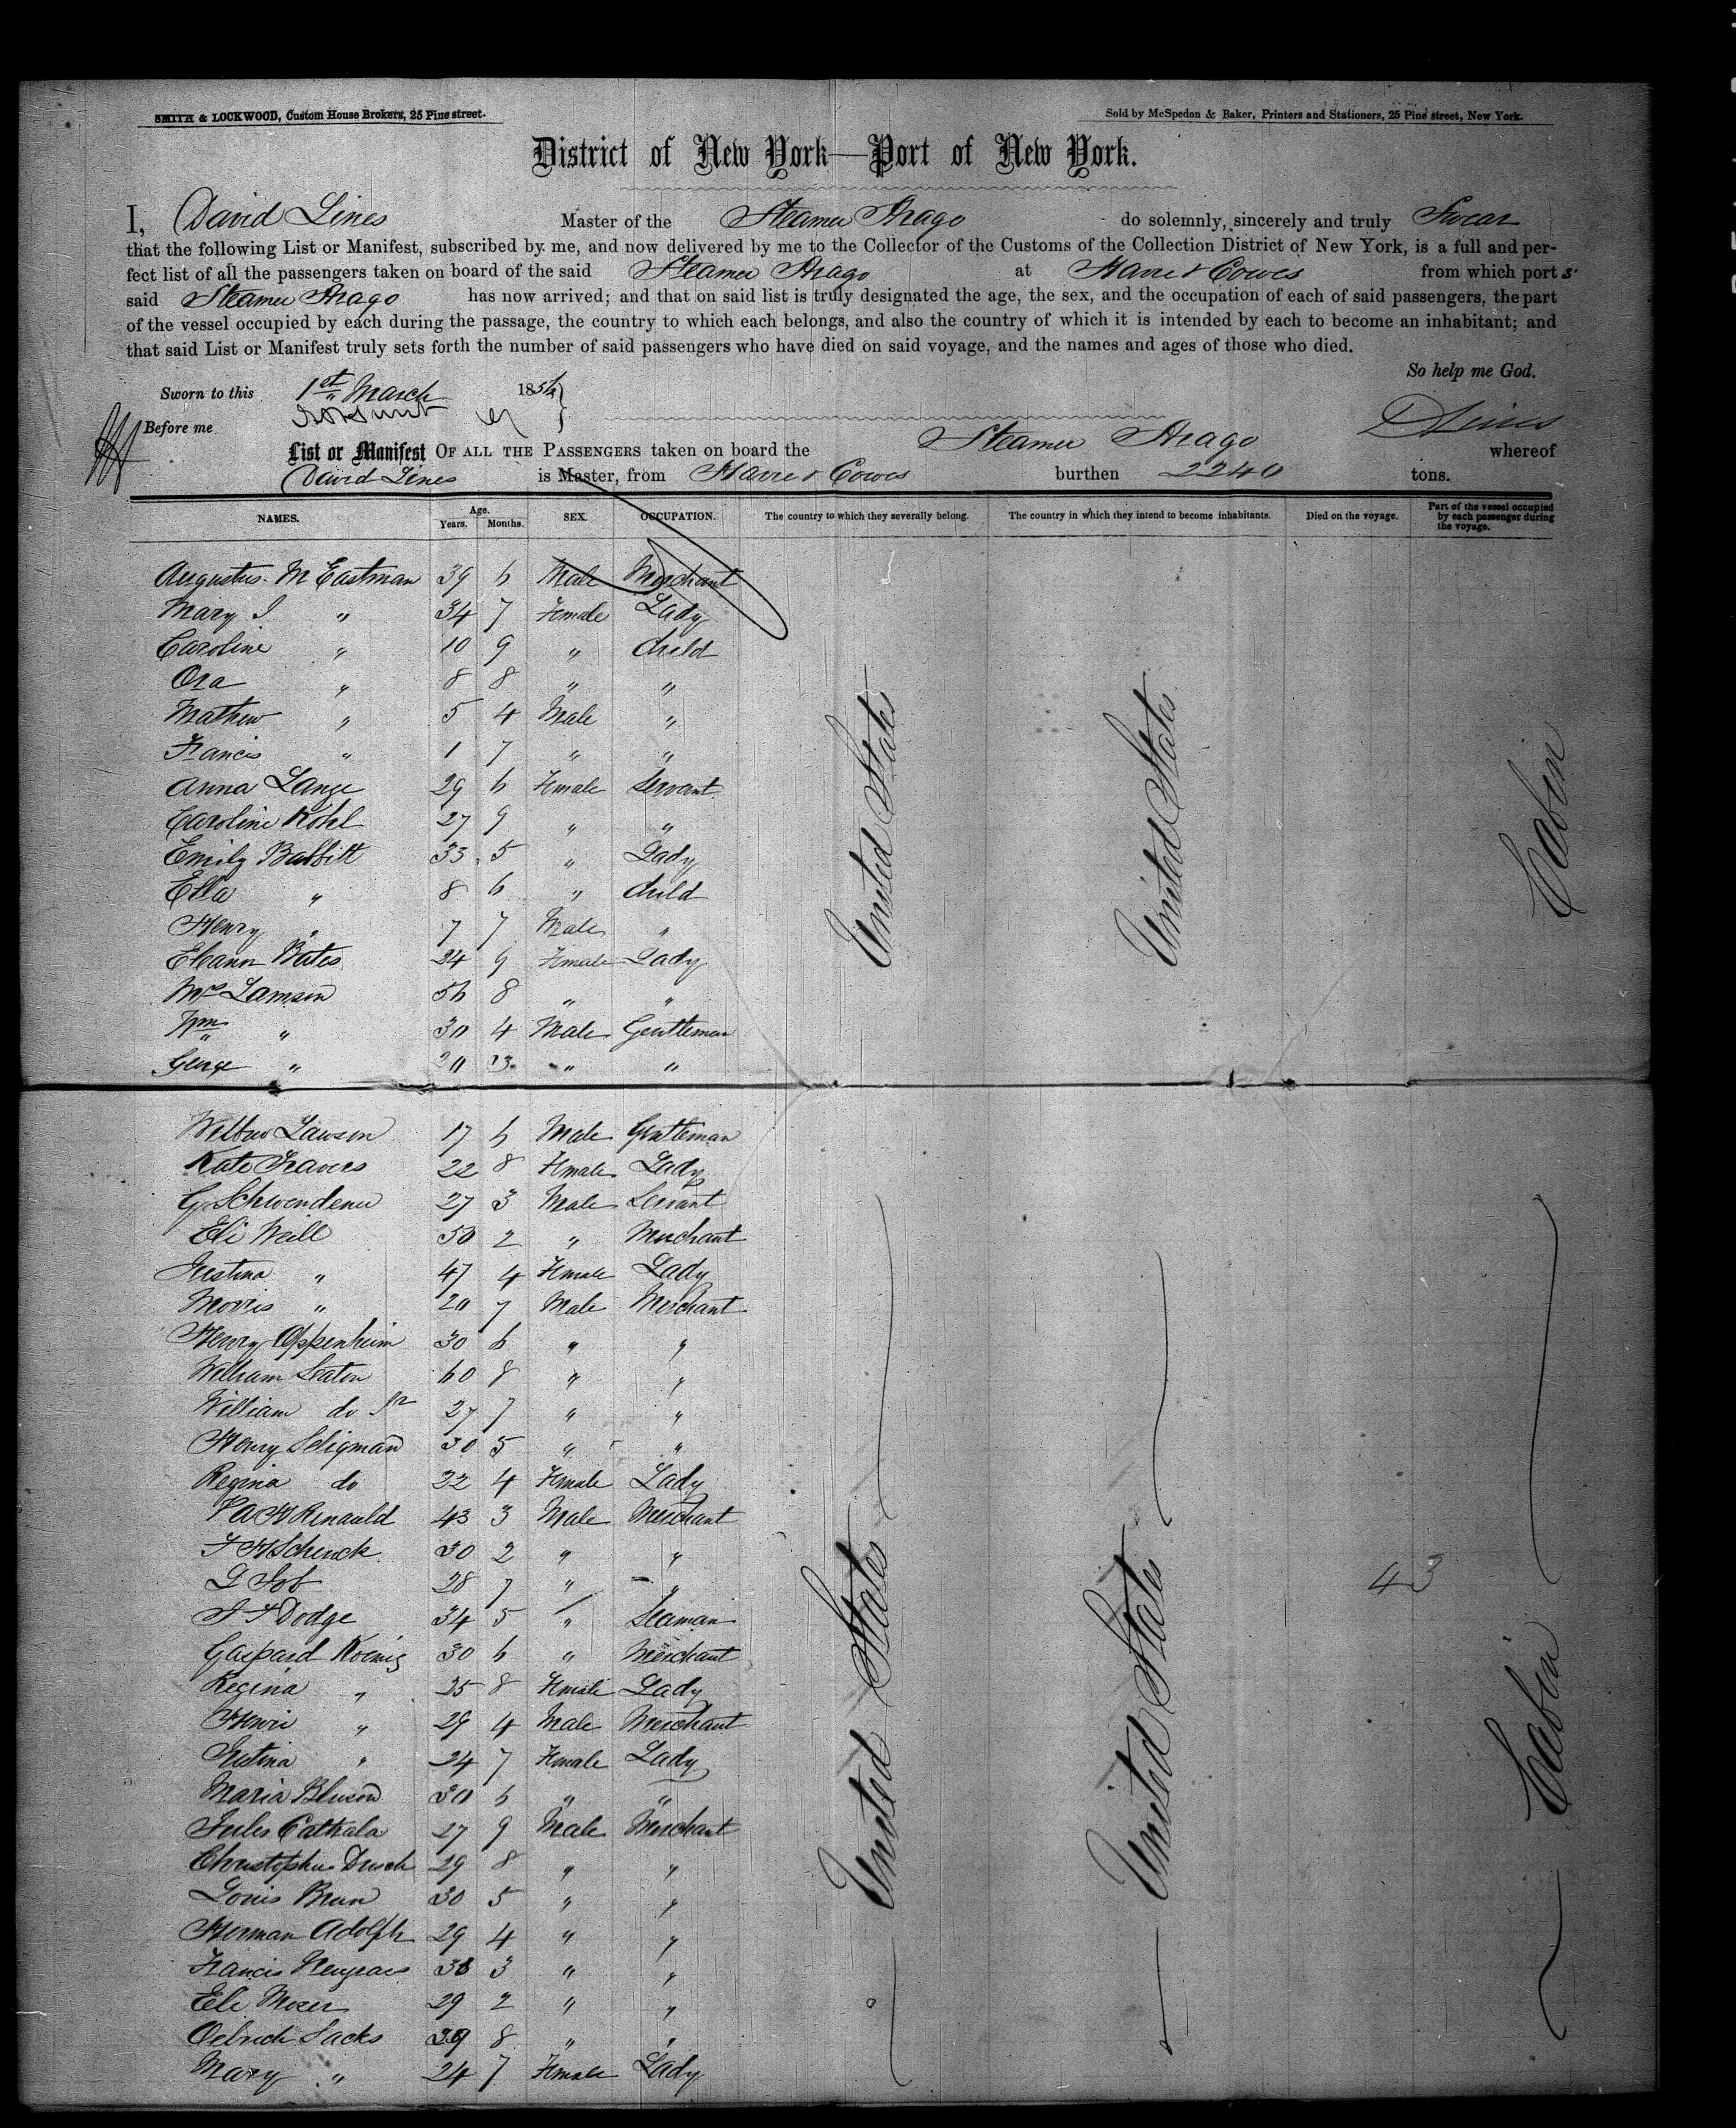 SMITH & LOCKWOOD, Custom House Brokers, 25 Pine street.
Sold by McSpedon & Baker, Printers and Stationers, 25 Pine street, New York.
District of New York—Port of New York.
I, David Lines Master of the Steamer Arago do solemnly, sincerely and truly Swear
that the following List or Manifest, subscribed by me, and now delivered by me to the Collector of the Customs of the Collection District of New York, is a full and per-
fect list of all the passengers taken on board of the said Steamer Arago at Havre & Cowes from which port s
said Steamer Arago has now arrived; and that on said list is truly designated the age, the sex, and the occupation of each of said passengers, the part
of the vessel occupied by each during the passage, the country to which each belongs, and also the country of which it is intended by each to become an inhabitant; and
that said List or Manifest truly sets forth the number of said passengers who have died on said voyage, and the names and ages of those who died.
So help me God.
Sworn to this 1st March 185
Before me
D Lines
List or Manifest OF ALL THE PASSENGERS taken on board the Steamer Arago whereof
David Lines is Master, from Havre & Cowes burthen 2240 tons.
NAMES. Age. Years. Months. SEX. OCCUPATION. The country to which they severally belong. The country in which they intend to become inhabitants. Died on the voyage. Part of the vessel occupied by each passenger during the voyage.
Augustus M Eastman 39 6 Male Merchant
Mary I " 34 7 Female Lady
Caroline " 10 9 " Child
Ora " 8 8 " "
Mathew " 5 4 Male "
Francis " 1 7 " "
Anna Lange 29 6 Female Servant
Caroline Kohl 27 9 " "
Emily Babbitt 33 5 " Lady
Ella " 8 6 " Child
Henry " 7 7 Male "
Eleanor Bates 24 9 Female Lady
Mrs Lamson 56 8 " "
Wm " 30 4 Male Gentleman
George " 20 3 " "
United States United States Cabin
Wilbur Lawson 17 6 Male Gentleman
Kate Travers 22 8 Female Lady
G Schwendener 27 3 Male Servant
Eli Weill 50 2 " Merchant
Justina " 47 4 Female Lady
Morris " 20 7 Male Merchant
Henry Oppenheim 30 6 " "
William Seaton 60 8 " "
William do Jr 27 7 " "
Henry Seligman 30 5 " "
Regina do 22 4 Female Lady
Renauld 43 3 Male Merchant
F H Schenck 30 2 " "
28 7 " "
Dodge 34 5 " Seaman
Gaspard Koenig 30 6 " Merchant
Regina " 25 8 Female Lady
Henri " 29 4 Male Merchant
Justina " 24 7 Female Lady
Maria 30 6 " "
Jules Cathala 27 9 Male Merchant
Christopher 29 8 " "
Louis Brun 30 5 " "
Herman Adolph 29 4 " "
Francis 3 " "
Eli Moser 29 2 " "
Sacks 8 " "
Mary " 24 7 Female Lady
United States United States 43 Cabin